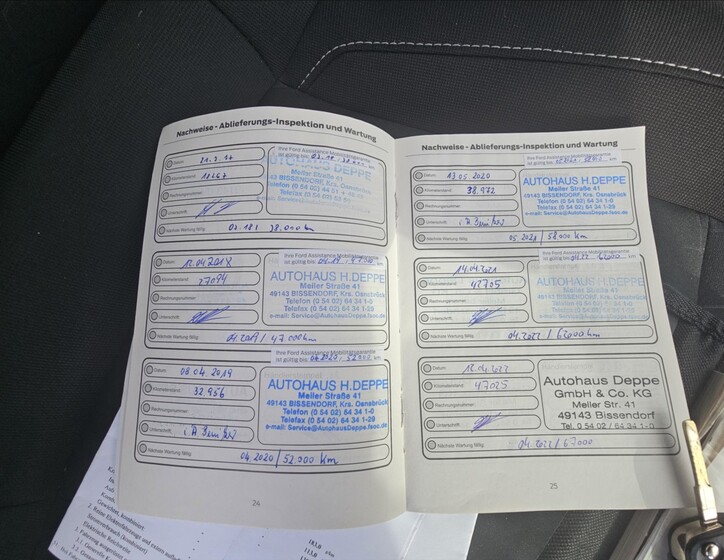 Nachweise - Ablieferungs-Inspektion und Wartung
Ihre Ford Assistance Mobilitätsgarantie
ist gültig bis: km
Datum
Kilometerstand
Rechnungsnummer
Unterschrift
AUTOHAUS DEPPE
Meller Straße 41
49143 BISSENDORF, Krs. Osnabrück
Nächste Wartung fällig 02.18 / 38.000 km
Ihre Ford Assistance Mobilitätsgarantie
ist gültig bis: 04.19 - 47.000 km
Datum 12.04.2018
Kilometerstand 27094
Rechnungsnummer
Unterschrift
AUTOHAUS H.DEPPE
Meller Straße 41
49143 BISSENDORF, Krs. Osnabrück
Telefon (0 54 02) 64 34 1-0
Telefax (0 54 02) 64 34 1-29
e-mail: Service@AutohausDeppe.fsoc.de
Nächste Wartung fällig 04.2019 / 47.000 km
Ihre Ford Assistance Mobilitätsgarantie
ist gültig bis: 04.2020 - 52.000 km
Datum 08.04.2019
Kilometerstand 32956
Rechnungsnummer
Unterschrift
AUTOHAUS H.DEPPE
Meller Straße 41
49143 BISSENDORF, Krs. Osnabrück
Telefon (0 54 02) 64 34 1-0
Telefax (0 54 02) 64 34 1-29
e-mail: Service@AutohausDeppe.fsoc.de
Nächste Wartung fällig 04.2020 / 52.000 km
24
Nachweise - Ablieferungs-Inspektion und Wartung
Ihre Ford Assistance Mobilitätsgarantie
ist gültig bis: km
Datum 13.05.2020
Kilometerstand 38.972
Rechnungsnummer
Unterschrift
AUTOHAUS H.DEPPE
Meller Straße 41
49143 BISSENDORF, Krs. Osnabrück
Telefon (0 54 02) 64 34 1-0
Telefax (0 54 02) 64 34 1-29
e-mail: Service@AutohausDeppe.fsoc.de
Nächste Wartung fällig 05.2021 / 58.000 km
Ihre Ford Assistance Mobilitätsgarantie
ist gültig bis: 04.22 62000 km
Datum 14.04.2021
Kilometerstand 42705
Rechnungsnummer
Unterschrift
AUTOHAUS H.DEPPE
Meller Straße 41
49143 BISSENDORF, Krs. Osnabrück
Telefon (0 54 02) 64 34 1-0
Telefax (0 54 02) 64 34 1-29
Nächste Wartung fällig 04.2022 / 62000 km
Datum 12.04.2022
Kilometerstand 47025
Rechnungsnummer
Unterschrift
Autohaus Deppe
GmbH & Co. KG
Meller Str. 41
49143 Bissendorf
Tel. 0 54 02 / 64 34 1-0
Nächste Wartung fällig / 67000
25